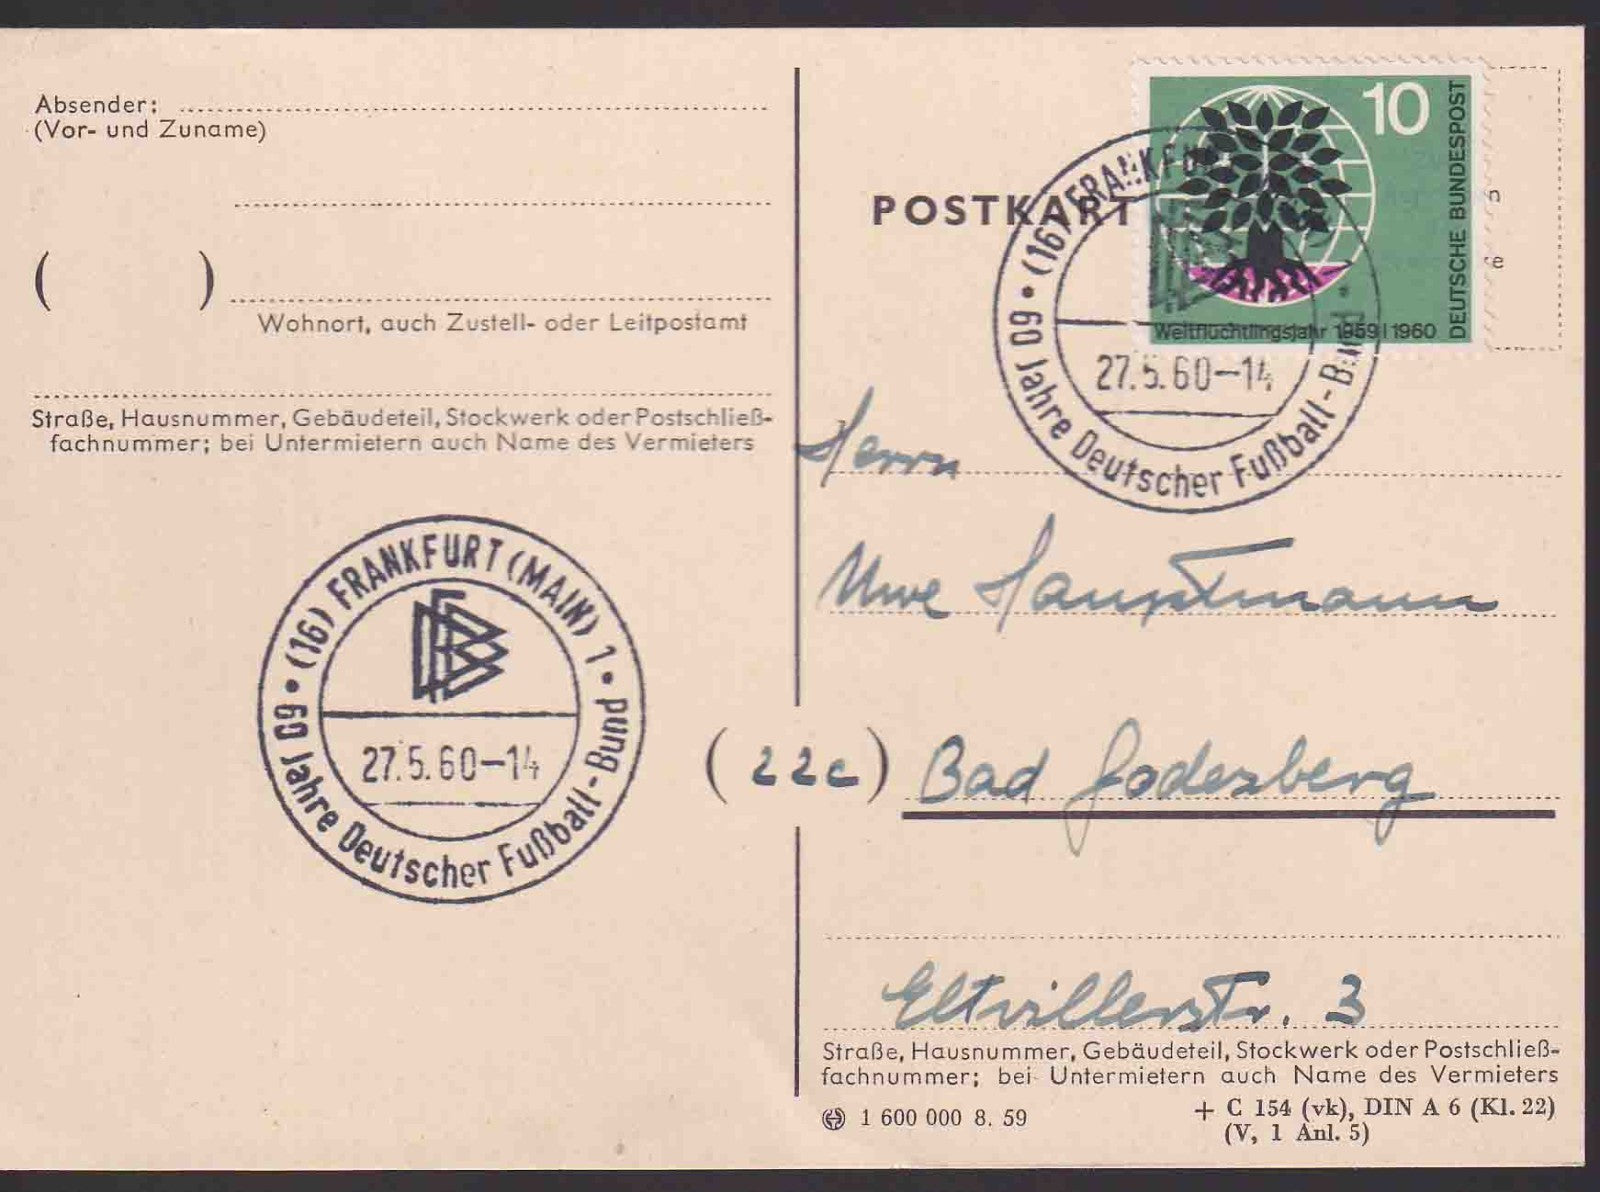 Absender:
(Vor- und Zuname)
( )
Wohnort, auch Zustell- oder Leitpostamt
Straße, Hausnummer, Gebäudeteil, Stockwerk oder Postschließ-
fachnummer; bei Untermietern auch Name des Vermieters
(16) FRANKFURT (MAIN) 1
27.5.60-14
60 Jahre Deutscher Fußball-Bund
POSTKART
10
DEUTSCHE BUNDESPOST
Weltflüchtlingsjahr 1959|1960
(16) FRANKFU
27.5.60-14
60 Jahre Deutscher Fußball-Bund
Herrn
Uwe Hauptmann
(22c) Bad Godesberg
Eltvillerstr. 3
Straße, Hausnummer, Gebäudeteil, Stockwerk oder Postschließ-
fachnummer; bei Untermietern auch Name des Vermieters
1 600 000 8. 59
+ C 154 (vk), DIN A 6 (Kl. 22)
(V, 1 Anl. 5)